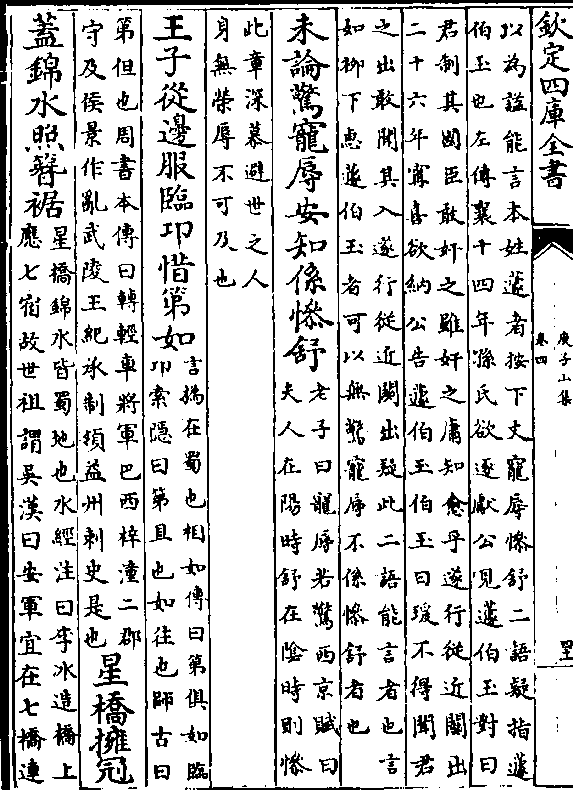 欽定四庫全書
庾子山集
卷四
以為諡能言本姓蘧者按下丈寵辱慘舒二語疑指蘧
伯玉也左傳襄十四年孫氏欲逐獻公見蘧伯玉對曰
君制其國臣敢奸之雖奸之庸知愈乎遂行從近關出
二十六年甯喜欲納公告蘧伯玉伯玉曰瑗不得聞君
之出敢聞其入遂行從近關出疑此二語能言者也言
如柳下惠蘧伯玉者可以無驚寵辱不係慘舒者也
未論驚寵辱安知係慘舒
老子曰寵辱若驚西京賦曰
夫人在陽時舒在陰時則慘
此章深慕避世之人
身無榮辱不可及也
王子從邊服臨卭惜第如
言撝在蜀也相如傳曰第俱如臨
卭索隱曰第且也如往也師古曰
第但也周書本傳曰轉輕車將軍巴西梓潼二郡
守及侯景作亂武陵王紀承制授益州刺史是也
星橋擁冠
蓋錦水照簪裾
星橋錦水皆蜀地也水經注曰李冰造橋上
應七宿故世祖謂吳漢曰安軍宜在七橋連